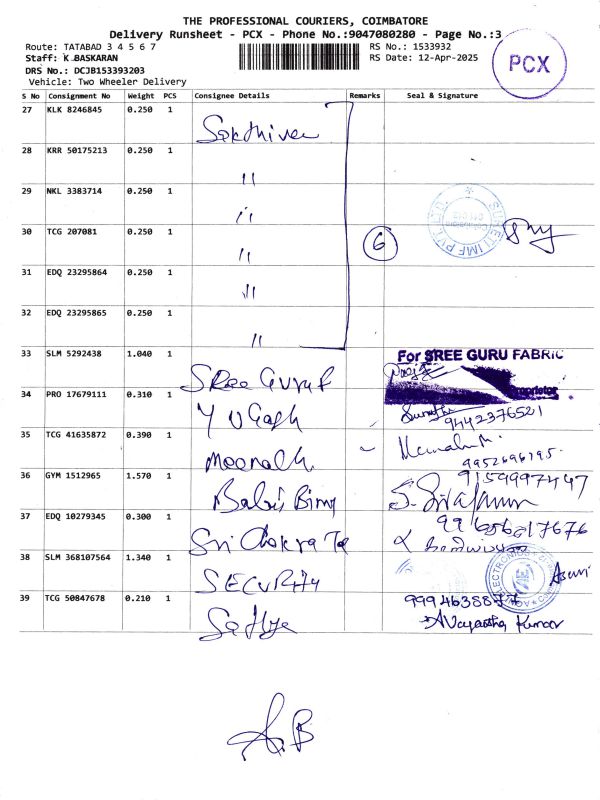 THE PROFESSIONAL COURIERS, COIMBATORE
Delivery Runsheet - PCX - Phone No.:9047080280 - Page No.:3
Route: TATABAD 3 4 5 6 7
RS No.: 1533932
Staff: K BASKARAN
RS Date: 12-Apr-2025
DRS No.: DCJB153393203
Vehicle: Two Wheeler Delivery
PCX
S No Consignment No Weight PCS Consignee Details Remarks Seal & Signature
27 KLK 8246845 0.250 1
Sakthivel
28 KRR 50175213 0.250 1
"
29 NKL 3383714 0.250 1
"
30 TCG 207081 0.250 1
" 6
31 EDQ 23295864 0.250 1
"
32 EDQ 23295865 0.250 1
"
33 SLM 5292438 1.040 1 For SREE GURU FABRIC
Sree Guru F Proprietor
34 PRO 17679111 0.310 1
9442376521
35 TCG 41635872 0.390 1
9952696195
36 GYM 1512965 1.570 1 9159997447
37 EDQ 10279345 0.300 1
Sri Chakra Te
38 SLM 368107564 1.340 1
SECURITY
39 TCG 50847678 0.210 1 9994638877
Sathya Kumar